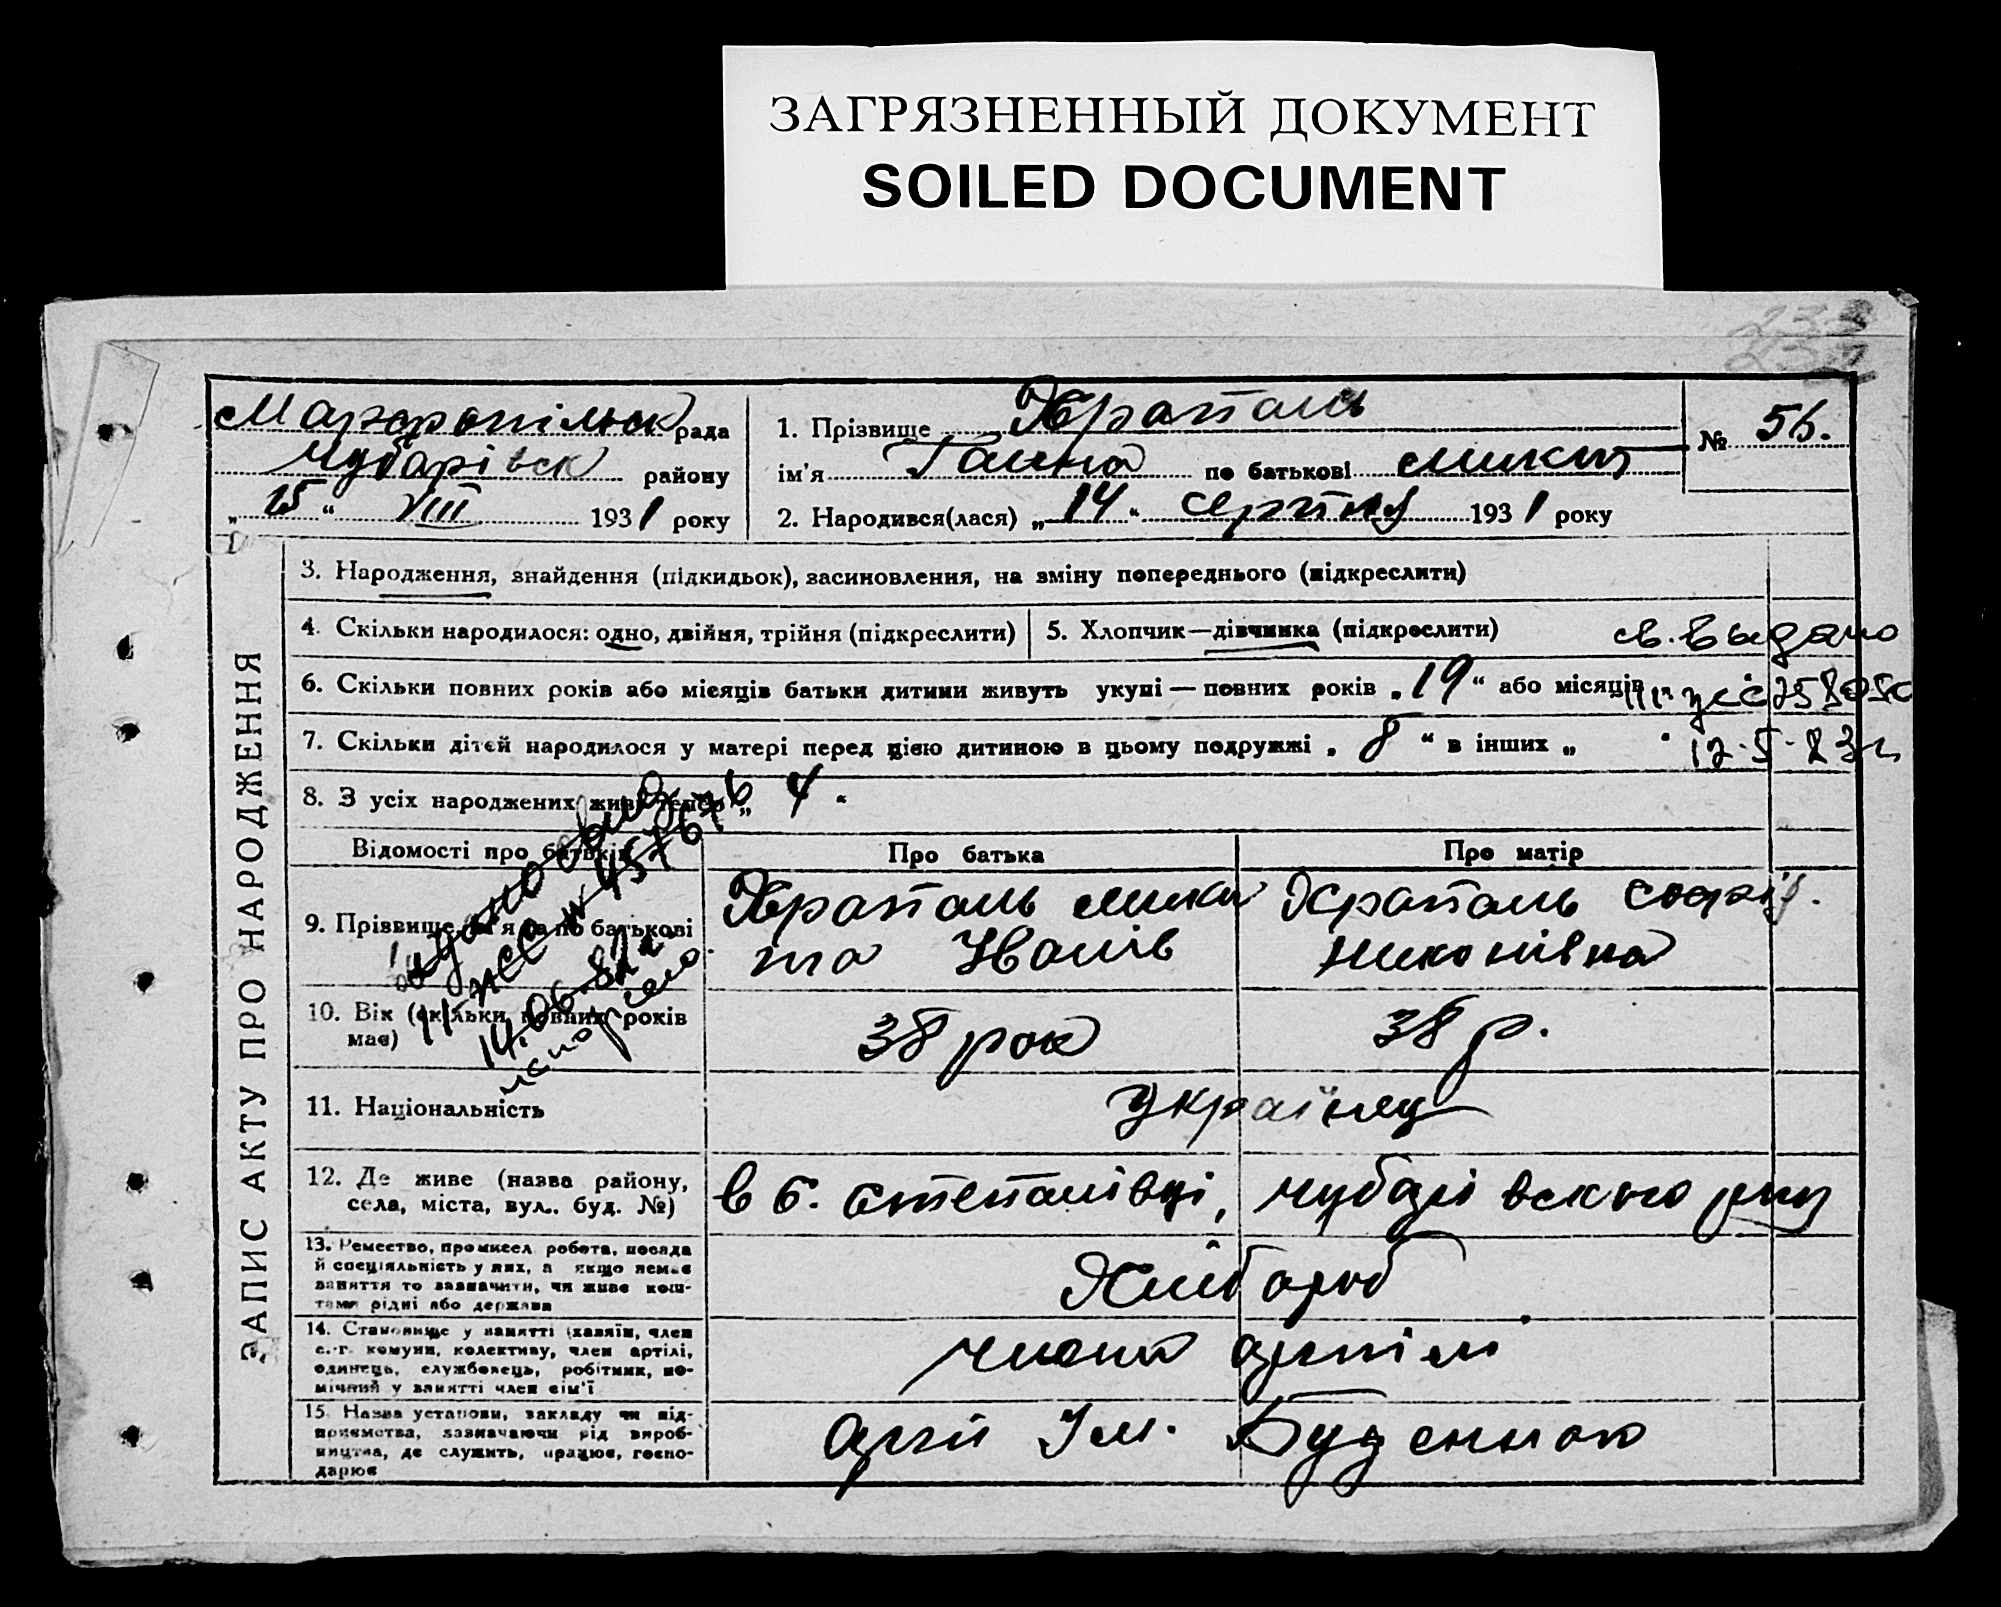 ЗАГРЯЗНЕННЫЙ ДОКУМЕНТ
SOILED DOCUMENT
Марфопільск рада
Чубарівск району
„ 15 “ VIII 1931 року
1. Прізвище Храпаль
ім'я Ганна по батькові Микит
2. Народився(лася) „ 14 “ Серпня 1931 року
№ 56.
ЗАПИС АКТУ ПРО НАРОДЖЕННЯ
3. Народження, знайдення (підкидьок), засиновлення, на зміну попереднього (підкреслити)
4. Скільки народилося: одно, двійня, трійня (підкреслити)
5. Хлопчик—дівчинка (підкреслити)
св. выдано
6. Скільки повних років або місяців батьки дитини живуть укупі — повних років „ 19 “ або місяців
7. Скільки дітей народилося у матері перед цією дитиною в цьому подружжі „ 8 “ в інших „
12.5.83г
8. З усіх народжених живі тепер „ 4 “
Відомості про батьків
Про батька
Про матір
9. Прізвище ім'я та по батькові
Храпаль Мики
та Іванів
Храпаль Софія.
Никонівна
10. Вік (скільки повних років
має)
38 рок
38 р.
14.06.82г.
11. Національність
Українец
12. Де живе (назва району,
села, міста, вул., буд. №)
в с. Степанівці, Чубарівского рну
13. Ремество, промисел робота, посада
й спеціяльність у них, а якщо немає
заняття то зазначити, чи живе кош-
тами рідні або держави
Хлібороб
14. Становище у занятті (хазяїн, член
с.-г. комуни, колективу, член артілі,
одинець, службовець, робітник, по-
мічний у занятті член сім'ї
член артіли
15. Назва установи, закладу чи під-
приємства, зазначаючи рід вироб-
ництва, де служить, працює, госпо-
дарює
Арті Ім. Буденого